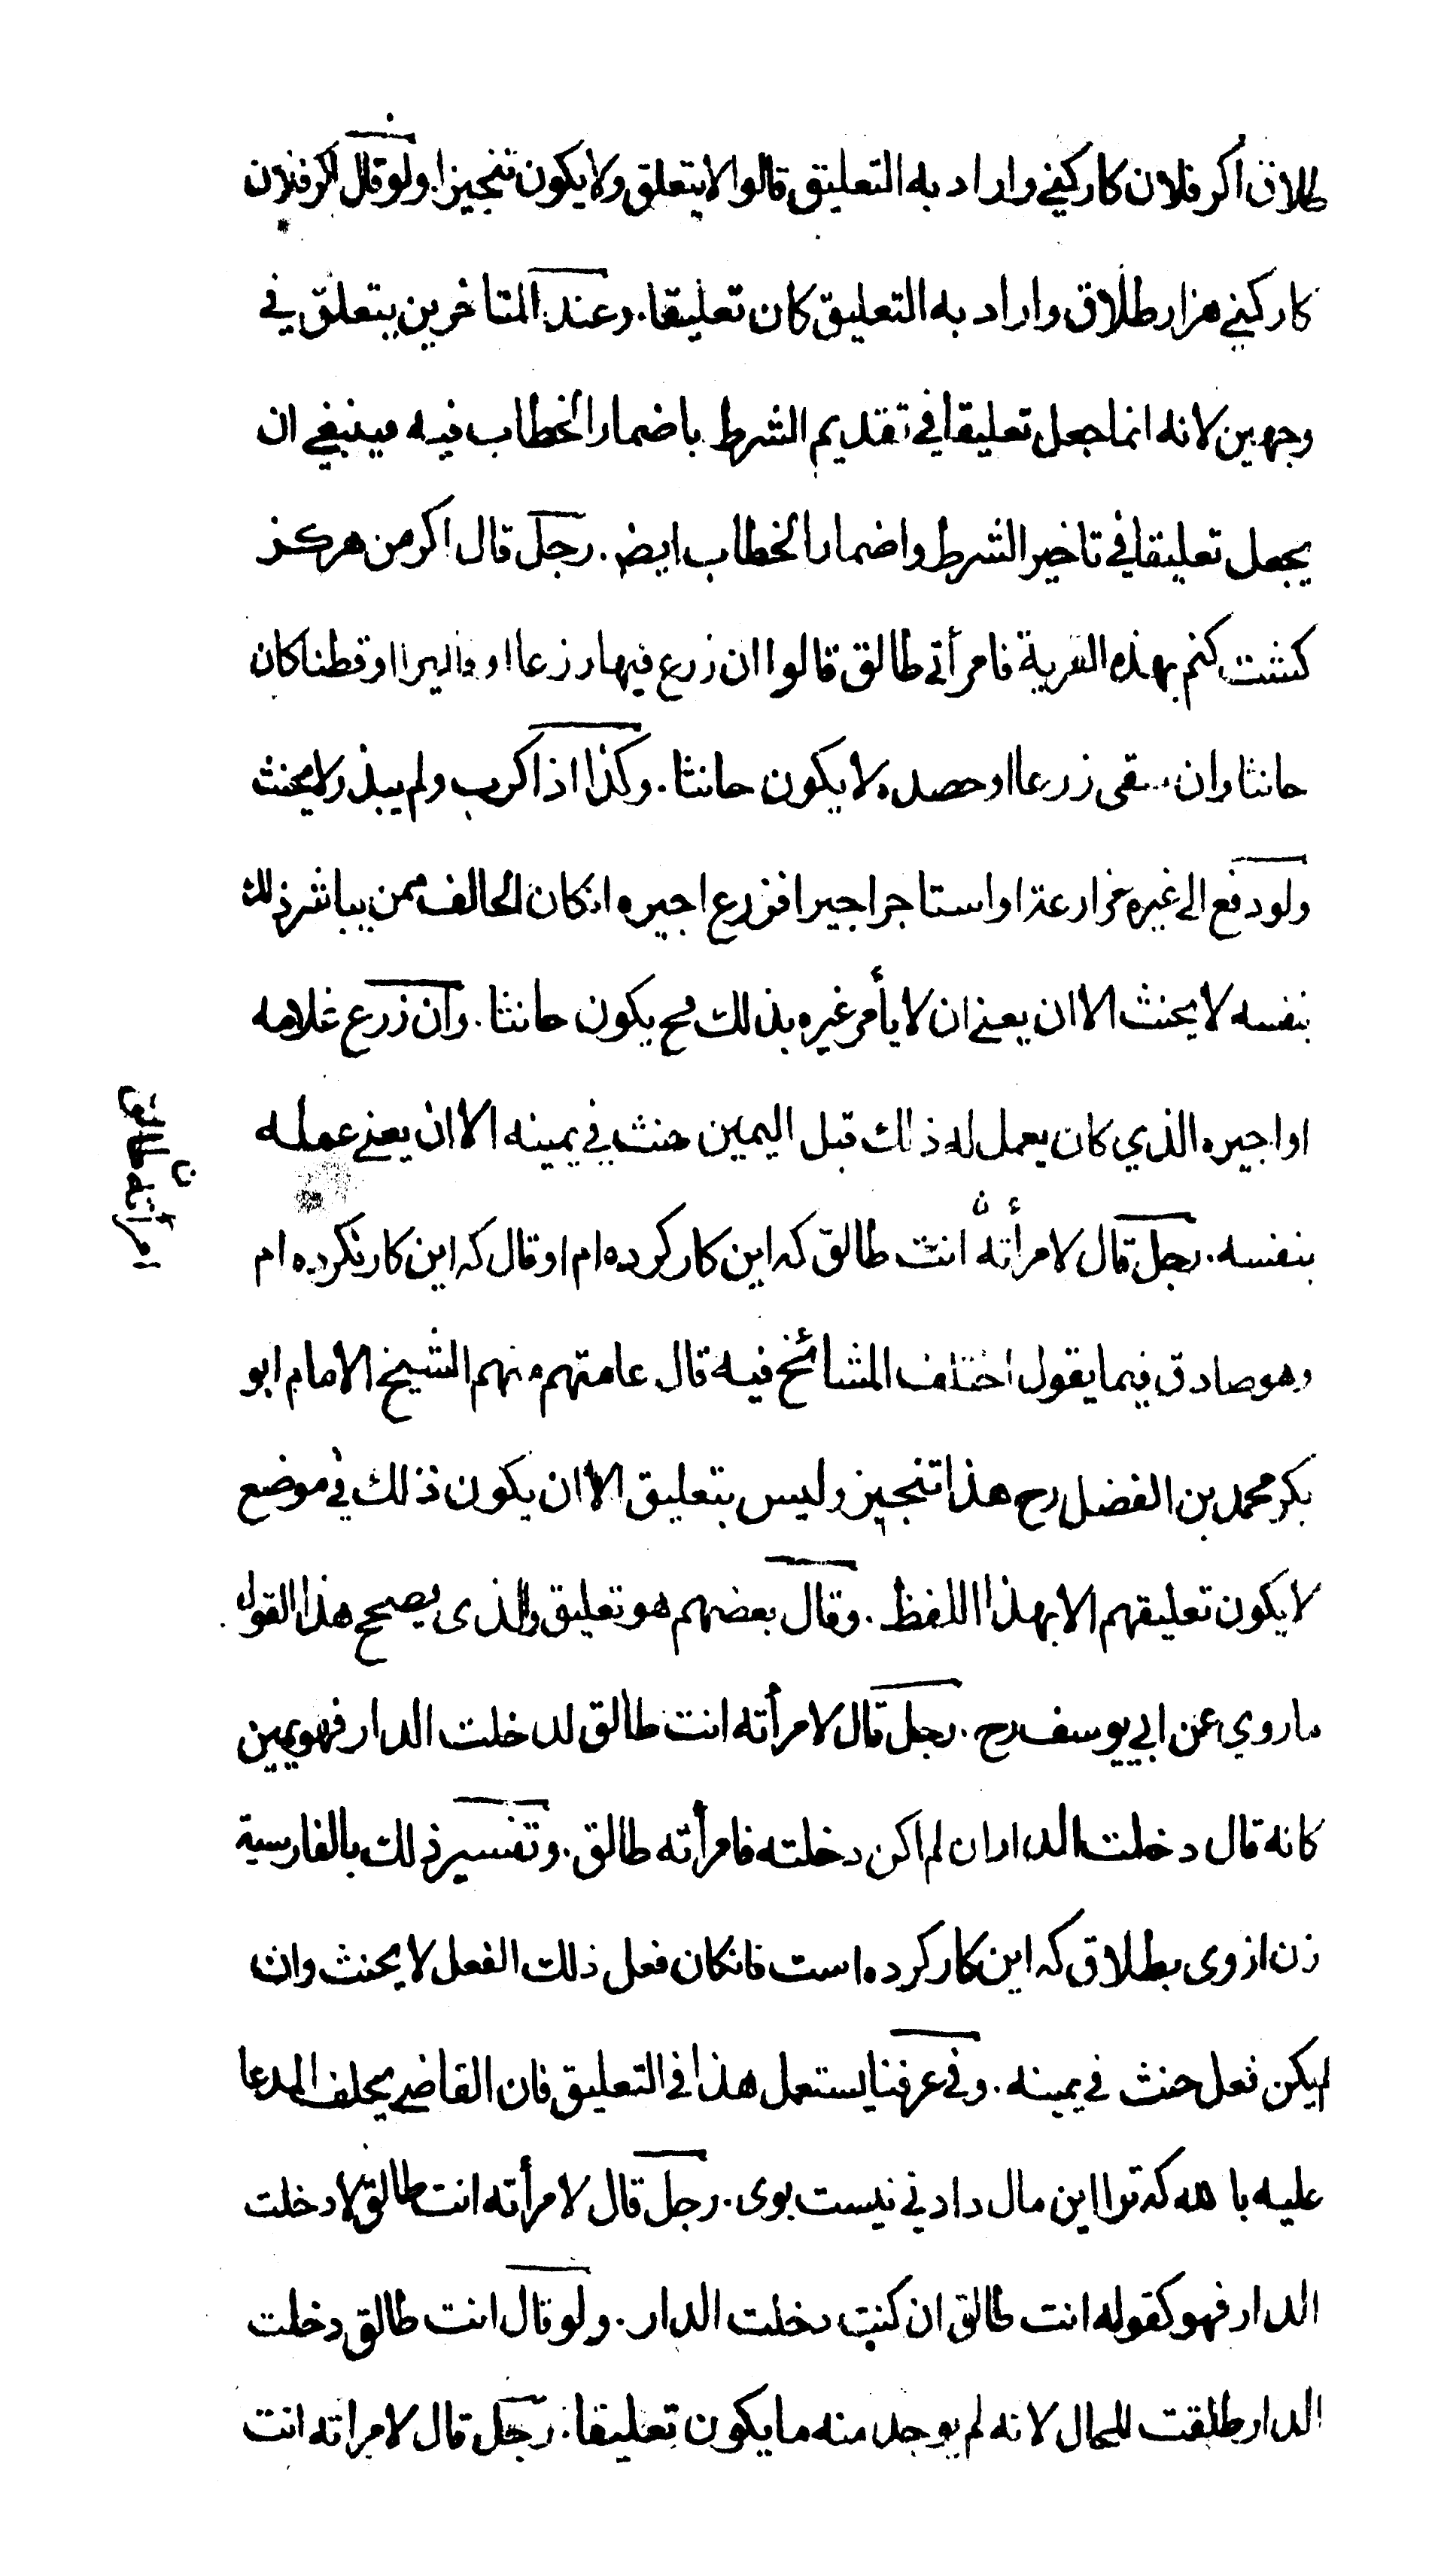 طلاق اكر فلان كار كنى واراد به التعليق قالوا لا يتعلق ولا يكون تنجيزا. ولو قال اكر فلان
كار كنى هزار طلاق واراد به التعليق كان تعليقا. وعند المتاخرين يتعلق في
وجهين لانه انما جعل تعليقا في تقديم الشرط باضمار الخطاب فيه فينبغي ان
يجعل تعليقا في تاخير الشرط واضمار الخطاب ايض. رجل قال اكر من هركز
كشت كنم بهذه القرية فامرأتي طالق قالوا ان زرع فيها رزعا او فاليرا او قطنا كان
حانثا وان سقى زرعا او حصده لا يكون حانثا. وكذا اذا كرب ولم يبذر لا يحنث
ولو دفع الى غيره مزارعة او استاجر اجيرا فزرع اجيره انكان الحالف ممن يباشر ذلك
بنفسه لا يحنث الا ان يعني ان لا يأمر غيره بذلك فح يكون حانثا. وان زرع غلامه
او اجيره الذي كان يعمل له ذلك قبل اليمين حنث في يمينه الا ان يعني عمله
بنفسه. رجل قال لامرأته انت طالق كه اين كار كرده ام او قال كه اين كار نكرده ام
وهو صادق فيما يقول اختلف المشائخ فيه قال عامتهم منهم الشيخ الامام ابو
بكر محمد بن الفضل رح هذا تنجيز وليس بتعليق الا ان يكون ذلك في موضع
لا يكون تعليقهم الا بهذا اللفظ. وقال بعضهم هو تعليق والذى يصحح هذا القول
ما روي عن ابي يوسف رح. رجل قال لامرأته انت طالق لدخلت الدار فهو يمين
كانه قال دخلت الدار ان لم اكن دخلته فامرأته طالق. وتفسير ذلك بالفارسية
زن از وى بطلاق كه اين كار كرده است فانكان فعل ذلك الفعل لا يحنث وان
لم يكن فعل حنث في يمينه. وفي عرفنا يستعمل هذا في التعليق فان القاضي يحلف المدعا
عليه بالله كه ترا اين مال دادني نيست بوى. رجل قال لامرأته انت طالق لا دخلت
الدار فهو كقوله انت طالق ان كنت دخلت الدار. ولو قال انت طالق دخلت
الدار طلقت للحال لانه لم يوجد منه ما يكون تعليقا. رجل قال لامراته انت
امرأته طالق
ن